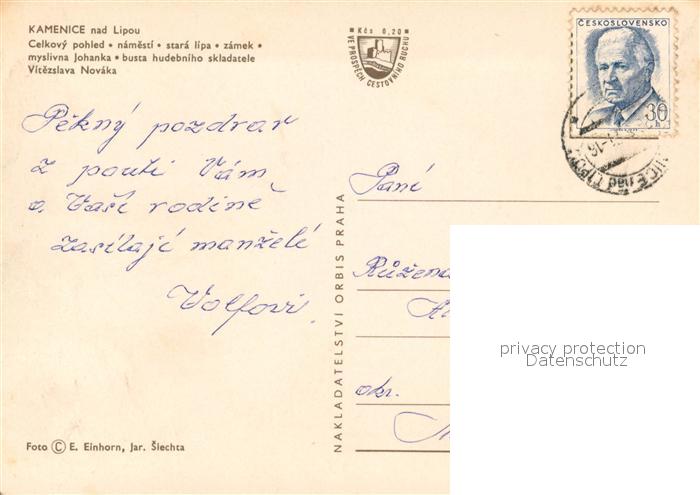 KAMENICE nad Lipou
Celkový pohled • náměstí • stará lípa • zámek •
myslivna Johanka • busta hudebního skladatele
Vítězslava Nováka
Kčs 0,20
VE PROSPĚCH CESTOVNÍHO RUCHU
ČESKOSLOVENSKO
30 h
NICE nad LIPOU
Pěkný pozdrav
z pouti Vám
a Vaší rodině
zasílají manželé
Volfovi.
NAKLADATELSTVÍ ORBIS PRAHA
Paní
Růžena
okr.
privacy protection
Datenschutz
Foto © E. Einhorn, Jar. Šlechta